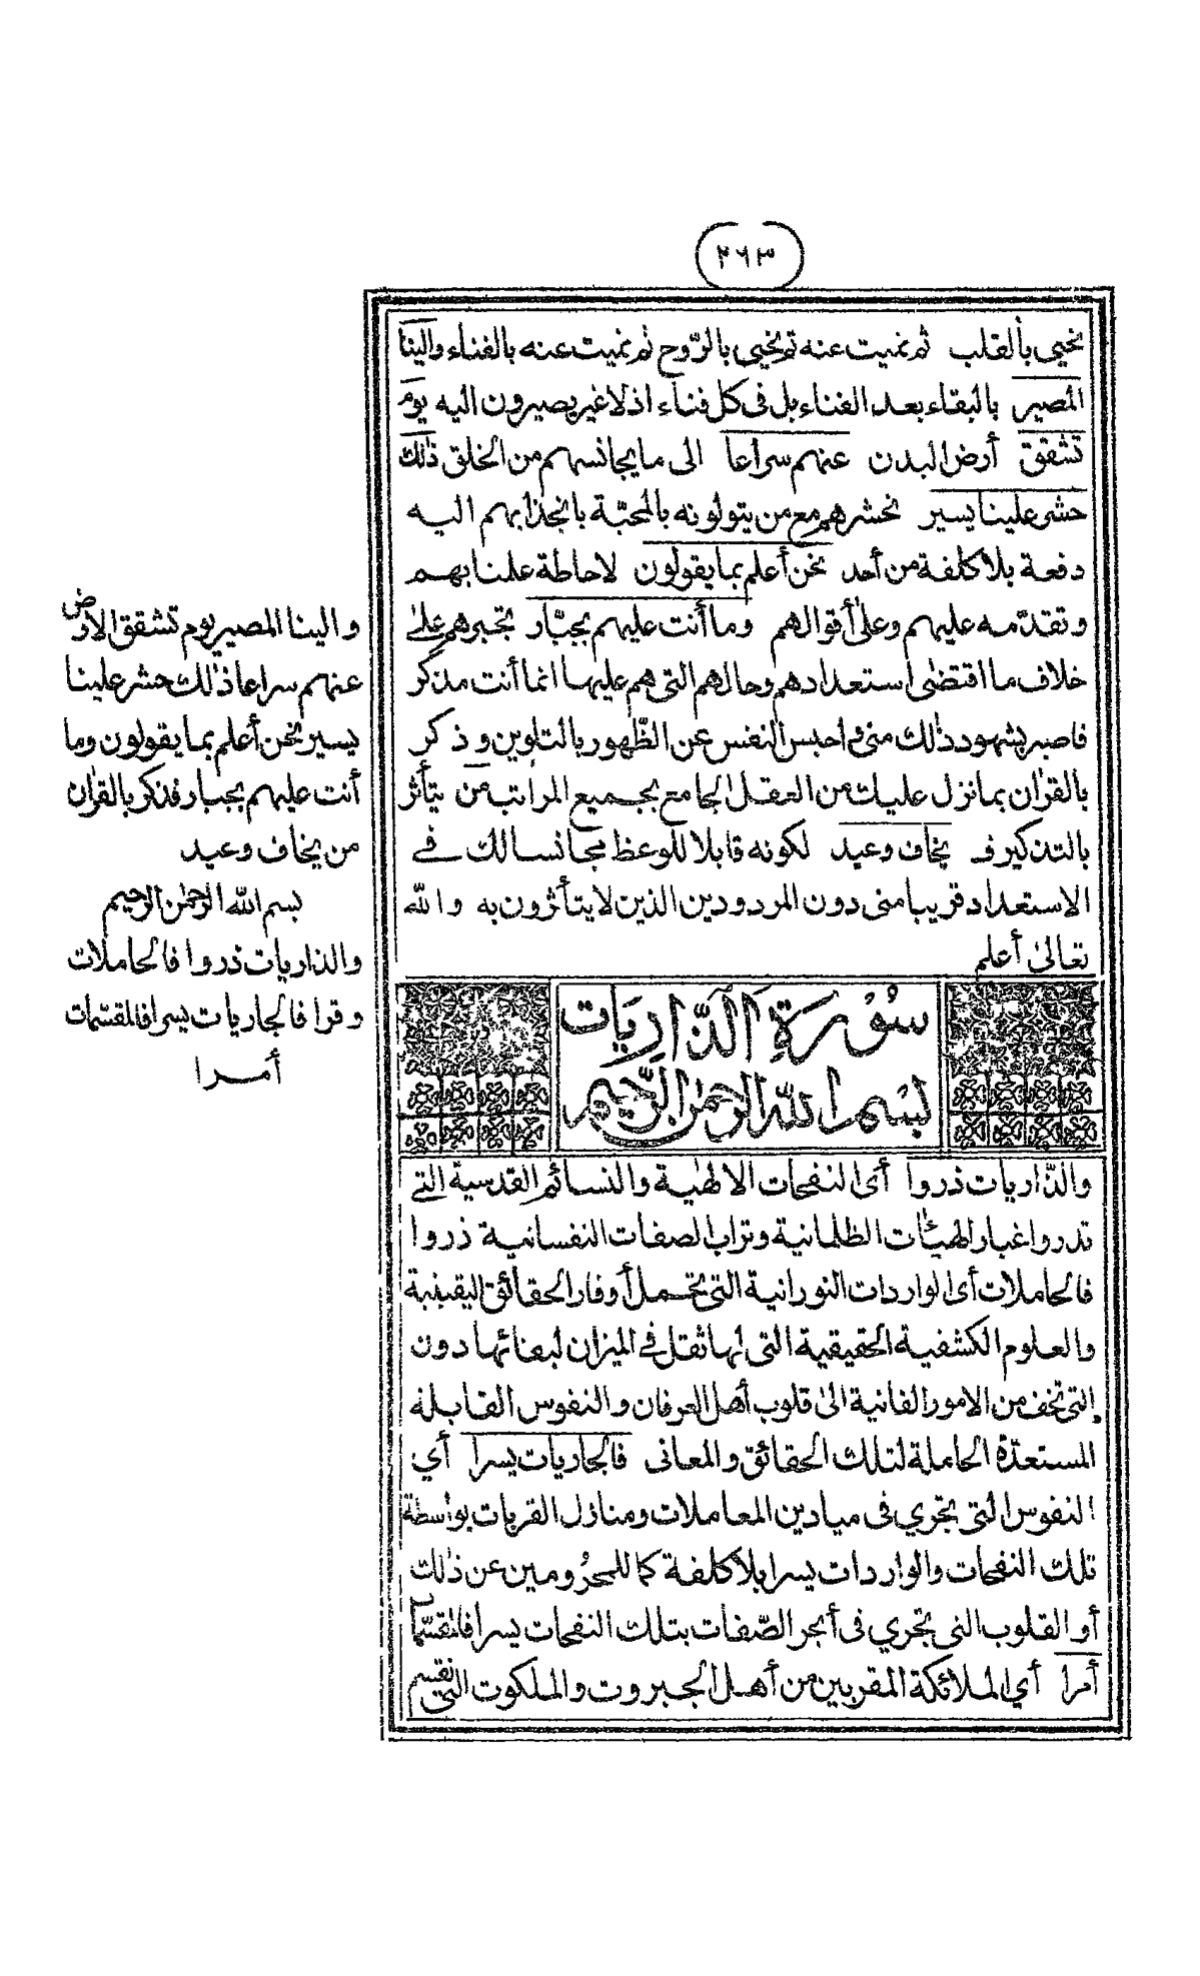 ٢٦٣
نحيي بالقلب ثم نميت عنه ثم نحيي بالروح ثم نميت عنه بالفناء والينا
المصير بالبقاء بعد الفناء بل فى كل فناء اذ لا غير يصيرون اليه يوم
تشقق أرض البدن عنهم سراعا الى ما يجانسهم من الخلق ذٰلك
حشر علينا يسير نحشرهم مع من يتولونه بالمحبّة بانجذابهم اليه
دفعة بلا كلفة من أحد نحن أعلم بما يقولون لاحاطة علمنا بهم
وتقدّمه عليهم وعلىٰ أقوالهم وما أنت عليهم بجبّار تجبرهم علىٰ
خلاف ما اقتضى استعدادهم وحالهم التى هم عليها انما أنت مذكر
فاصبر بشهود ذٰلك منى واحبس النفس عن الظّهور بالتلوين وذكر
بالقرآن بما نزل عليك من العقل الجامع بجميع المراتب من يتأثر
بالتذكير فـ يخاف وعيد لكونه قابلا للوعظ مجانسا لك في
الاستعداد قريبا منى دون المردودين الذين لا يتأثرون به والله
تعالىٰ أعلم
سُوْرَةِ الَذّارِيَات
بسم الله الرحمٰن الرحيم
والذّاريات ذروا أى النفحات الالٰهية والنسائم القدسية التي
تذروا غبار الهيئات الظلمانية وتراب الصفات النفسانية ذروا
فالحاملات أى الواردات النورانية التى تحمل أوقار الحقائق اليقينية
والعلوم الكشفية الحقيقية التى لها ثقل في الميزان لبقائها دون
التى تخف من الامور الفانية الىٰ قلوب أهل العرفان والنفوس القابلة
المستعدّة الحاملة لتلك الحقائق والمعانى فالجاريات يسرا أي
النفوس التى تجري فى ميادين المعاملات ومنازل القربات بواسطة
تلك النفحات والواردات يسرا بلا كلفة كما للمحرُومين عن ذٰلك
أو القلوب التى تجري فى أبحر الصّفات بتلك النفحات يسرا فالمقسّمات
أمرا أي الملائكة المقربين من أهل الجبروت والملكوت التى تقسم
والينا المصير يوم تشقق الارض
عنهم سراعا ذٰلك حشر علينا
يسير نحن أعلم بما يقولون وما
أنت عليهم بجبار فذكر بالقرآن
من يخاف وعيد
بسم الله الرحمٰن الرحيم
والذاريات ذروا فالحاملات
وقرا فالجاريات يسرا فالمقسّمات
أمرا